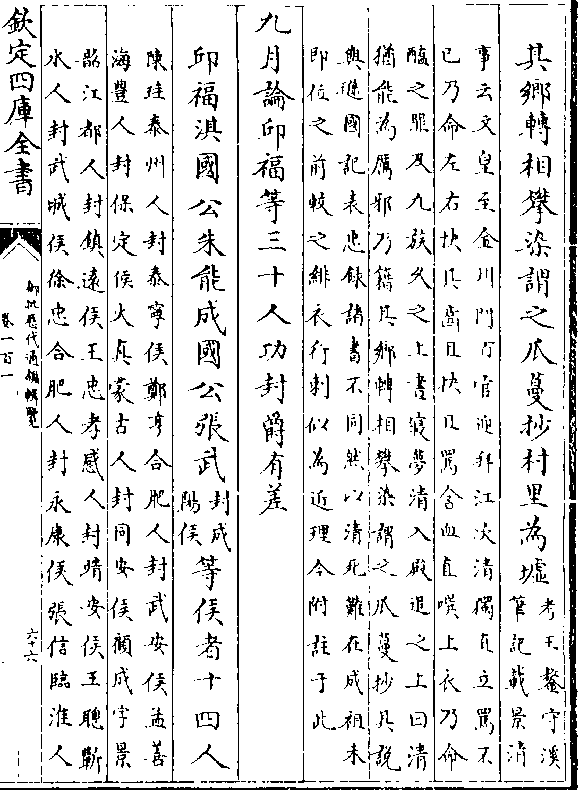 其鄉轉相攀染謂之瓜蔓抄村里為墟考王鏊守溪
筆記載景清
事云文皇至金川門百官迎拜江次清獨直立罵不
已乃命左右抉其齒且抉且罵含血直噀上衣乃命
醢之罪及九族久之上書寢夢清入殿追之上曰清
猶能為厲邪乃籍其鄉轉相攀染謂之瓜蔓抄其說
與遜國記表忠錄諸書不同然以清死難在成祖未
即位之前較之緋衣行刺似為近理今附註于此
九月論邱福等三十人功封爵有差
邱福淇國公朱能成國公張武封成
陽侯等侯者十四人
陳珪泰州人封泰寧侯鄭亨合肥人封武安侯孟善
海豐人封保定侯火真蒙古人封同安侯顧成字景
韶江都人封鎮遠侯王忠孝感人封靖安侯王聰蘄
水人封武城侯徐忠合肥人封永康侯張信臨淮人
欽定四庫全書
御批歷代通鑑輯覽
卷一百一
六十六